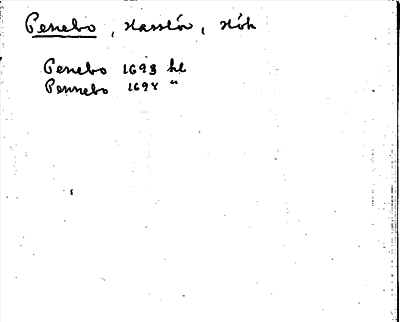 Penebo, Hasslöv, Hök
Penebo 1693 hl
Pennebo 1694 "